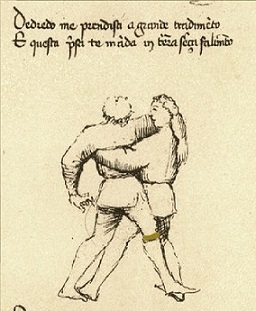 Dedredo me prendisti a grande tradimẽto
E questa p̃sa te mãda in tẽra sẽça falimẽto